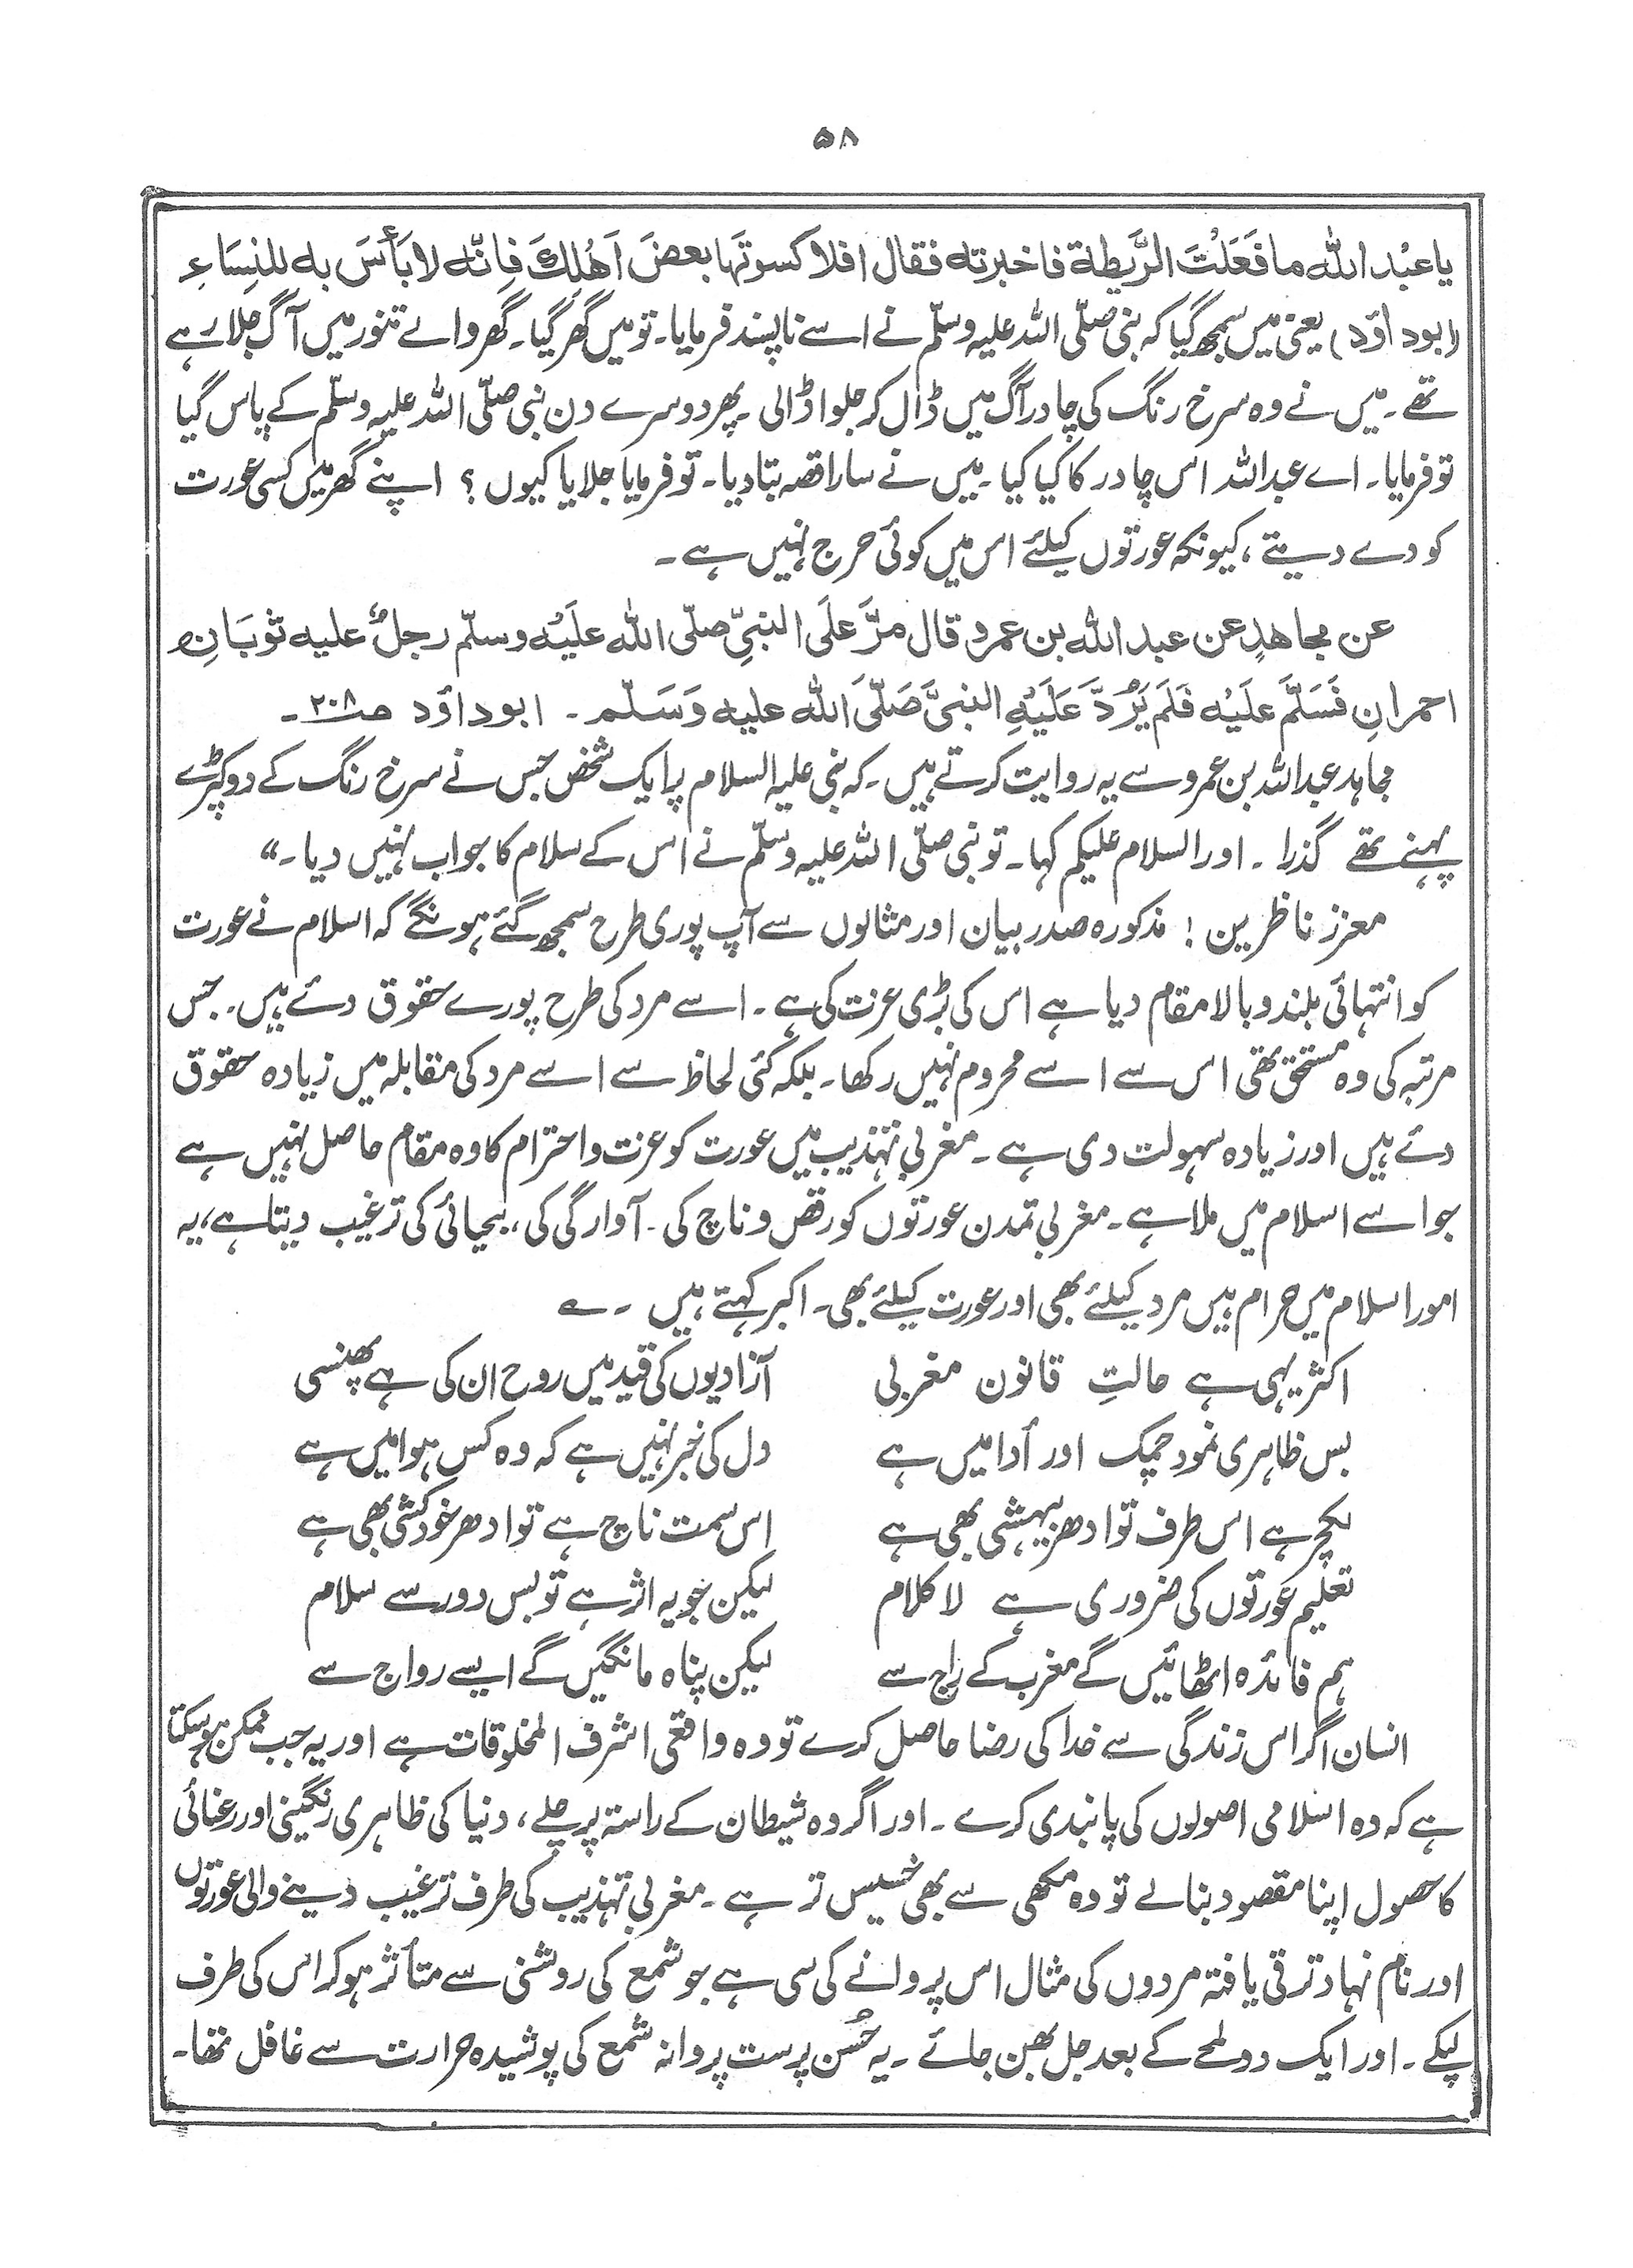 ۵۸
یا عبْد اللہ ما فَعَلْتَ الرَّیطة فاخبرته فقال افلا کسوتَها بعضَ اَهْلِكَ فاِنّه لا بَأْسَ به للنِسَاءِ
(ابوداؤد) یعنی میں سمجھ گیا کہ نبی صلّی اللہ علیہ وسلّم نے اسے ناپسند فرمایا۔ تو میں گھر گیا۔ گھر والے تنور میں آگ جلا رہے
تھے۔ میں نے وہ سرخ رنگ کی چادر آگ میں ڈال کر جلوا ڈالی۔ پھر دوسرے دن نبی صلّی اللہ علیہ وسلّم کے پاس گیا
تو فرمایا۔ اے عبداللہ اس چادر کا کیا کیا۔ میں نے سارا قصہ بتا دیا۔ تو فرمایا جلایا کیوں؟ اپنے گھر میں کسی عورت
کو دے دیتے، کیونکہ عورتوں کیلئے اس میں کوئی حرج نہیں ہے۔
عن مجاهدٍ عن عبد اللہ بن عمرو قال مرَّ عَلَی النبیِّ صلّی اللہ علَیْه وسلّم رجلٌ علیه ثوبَانِ
احمرانِ فَسَلَّمَ علَیْه فَلَم یَرُدَّ عَلَیْهِ النبیُّ صَلَّی اللہ علیه وَسَلّم۔ ابوداؤد صـ۲۰۸ـ
مجاہد عبداللہ بن عمرو سے یہ روایت کرتے ہیں۔ کہ نبی علیہ السلام پر ایک شخص جس نے سرخ رنگ کے دو کپڑے
پہنے تھے گذرا۔ اور السلام علیکم کہا۔ تو نبی صلّی اللہ علیہ وسلّم نے اس کے سلام کا جواب نہیں دیا۔“
معزز ناظرین! مذکورہ صدر بیان اور مثالوں سے آپ پوری طرح سمجھ گئے ہونگے کہ اسلام نے عورت
کو انتہائی بلند و بالا مقام دیا ہے اس کی بڑی عزت کی ہے۔ اسے مرد کی طرح پورے حقوق دئے ہیں۔ جس
مرتبہ کی وہ مستحق تھی اس سے اسے محروم نہیں رکھا۔ بلکہ کئی لحاظ سے اسے مرد کی مقابلہ میں زیادہ حقوق
دئے ہیں اور زیادہ سہولت دی ہے۔ مغربی تہذیب میں عورت کو عزت و احترام کا وہ مقام حاصل نہیں ہے
جو اسے اسلام میں ملا ہے۔ مغربی تمدن عورتوں کو رقص و ناچ کی۔ آوارگی کی، بیحیائی کی ترغیب دیتا ہے، یہ
امور اسلام میں حرام ہیں مرد کیلئے بھی اور عورت کیلئے بھی۔ اکبر کہتے ہیں۔ ؎
اکثر یہی ہے حالتِ قانون مغربی آزادیوں کی قید میں روح ان کی ہے پھنسی
بس ظاہری نمود چمک اور اَدا میں ہے دل کی خبر نہیں ہے کہ وہ کس ہوا میں ہے
لکچر ہے اس طرف تو ادھر بیہشی بھی ہے اس سمت ناچ ہے تو ادھر خودکشی بھی ہے
تعلیم عورتوں کی ضروری ہے لا کلام لیکن جو یہ اثر ہے تو بس دور سے سلام
ہم فائدہ اٹھائیں گے مغرب کے راج سے لیکن پناہ مانگیں گے ایسے رواج سے
انسان اگر اس زندگی سے خدا کی رضا حاصل کرے تو وہ واقعی اشرف المخلوقات ہے اور یہ جب ممکن ہو سکتا
ہے کہ وہ اسلامی اصولوں کی پابندی کرے۔ اور اگر وہ شیطان کے راستہ پر چلے، دنیا کی ظاہری رنگینی اور رعنائی
کا حصول اپنا مقصود بنالے تو وہ مکھی سے بھی خسیس تر ہے۔ مغربی تہذیب کی طرف ترغیب دینے والی عورتوں
اور نام نہاد ترقی یافتہ مردوں کی مثال اس پروانے کی سی ہے جو شمع کی روشنی سے متأثر ہو کر اس کی طرف
لپکے۔ اور ایک دو لمحے کے بعد جل بھن جائے۔ یہ حُسن پرست پروانہ شمع کی پوشیدہ حرارت سے غافل تھا۔